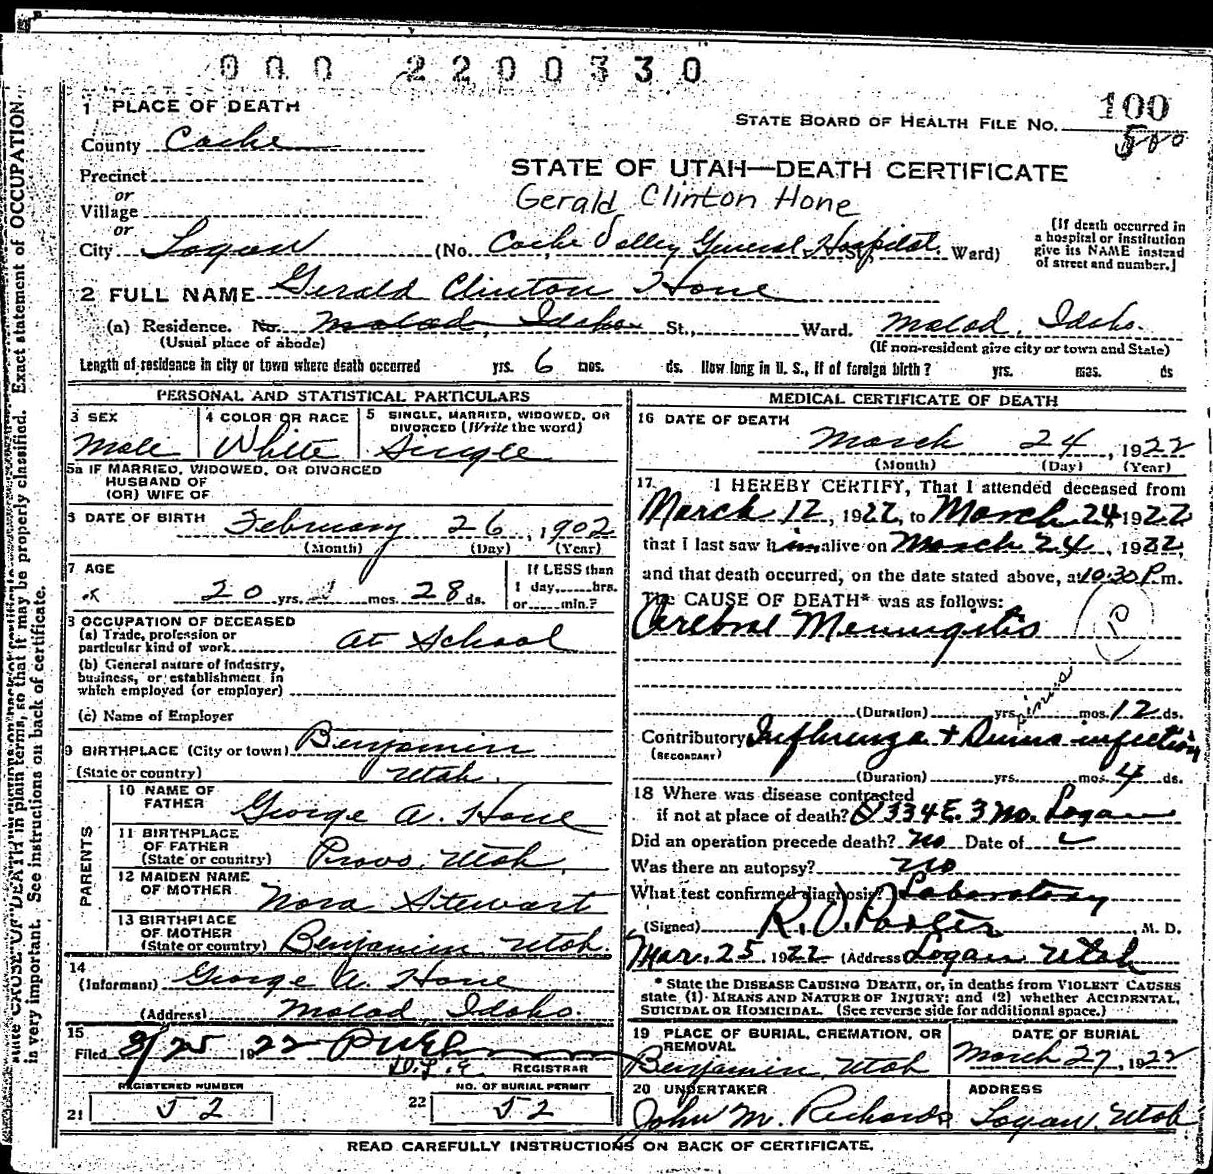 000 2200330
1 PLACE OF DEATH
STATE BOARD OF HEALTH FILE NO. 100
500
County Cache
STATE OF UTAH—DEATH CERTIFICATE
Precinct
or
Gerald Clinton Hone
Village
or
City Logan (No. Cache Valley General Hospital. St., Ward)
[If death occurred in a hospital or institution give its NAME instead of street and number.]
2 FULL NAME Gerald Clinton Hone
(a) Residence. No. Malad, Idaho St., Ward. Malad, Idaho.
(Usual place of abode) (If non-resident give city or town and State)
Length of residence in city or town where death occurred yrs. 6 mos. ds. How long in U. S., if of foreign birth? yrs. mos. ds
PERSONAL AND STATISTICAL PARTICULARS
3 SEX
Male
4 COLOR OR RACE
White
5 SINGLE, MARRIED, WIDOWED, OR DIVORCED (Write the word)
Single
5a IF MARRIED, WIDOWED, OR DIVORCED
HUSBAND OF
(OR) WIFE OF
6 DATE OF BIRTH February 26, 1902
(Month) (Day) (Year)
7 AGE
20 yrs. mos. 28 ds.
If LESS than
1 day, hrs.
or min.?
8 OCCUPATION OF DECEASED
(a) Trade, profession or
particular kind of work At School
(b) General nature of industry,
business, or establishment in
which employed (or employer)
(c) Name of Employer
9 BIRTHPLACE (City or town) Benjamin
(State or country) Utah.
PARENTS
10 NAME OF
FATHER George A. Hone
11 BIRTHPLACE
OF FATHER
(State or country) Provo, Utah,
12 MAIDEN NAME
OF MOTHER Nora Stewart
13 BIRTHPLACE
OF MOTHER
(State or country) Benjamin Utah.
14
(Informant) George A. Hone
(Address) Malad, Idaho.
15
Filed 3/25 1922
REGISTRAR
REGISTERED NUMBER
21 52
NO. OF BURIAL PERMIT
22 52
MEDICAL CERTIFICATE OF DEATH
16 DATE OF DEATH
March 24, 1922
(Month) (Day) (Year)
17 I HEREBY CERTIFY, That I attended deceased from
March 12, 1922, to March 24 1922
that I last saw him alive on March 24, 1922,
and that death occurred, on the date stated above, at 10:30 P.m.
The CAUSE OF DEATH* was as follows:
Cerebral Meningitis
(Duration) yrs. mos. 12 ds.
sinus
Contributory Influenza + Sinus infection
(SECONDARY)
(Duration) yrs. mos. 4 ds.
18 Where was disease contracted
if not at place of death? 334 E. 3 No. Logan
Did an operation precede death? No Date of
Was there an autopsy? no
What test confirmed diagnosis? Laboratory
(Signed) R. O. Porter, M. D.
Mar. 25 1922 (Address Logan Utah
* State the DISEASE CAUSING DEATH, or, in deaths from VIOLENT CAUSES
state (1) MEANS AND NATURE OF INJURY; and (2) whether ACCIDENTAL,
SUICIDAL OR HOMICIDAL. (See reverse side for additional space.)
19 PLACE OF BURIAL, CREMATION, OR REMOVAL
Benjamin, Utah
DATE OF BURIAL
March 27, 1922
20 UNDERTAKER
John M. Richards
ADDRESS
Logan, Utah
READ CAREFULLY INSTRUCTIONS ON BACK OF CERTIFICATE.
state CAUSE OF DEATH in plain terms, so that it may be properly classified. Exact statement of OCCUPATION
is very important. See instructions on back of certificate.